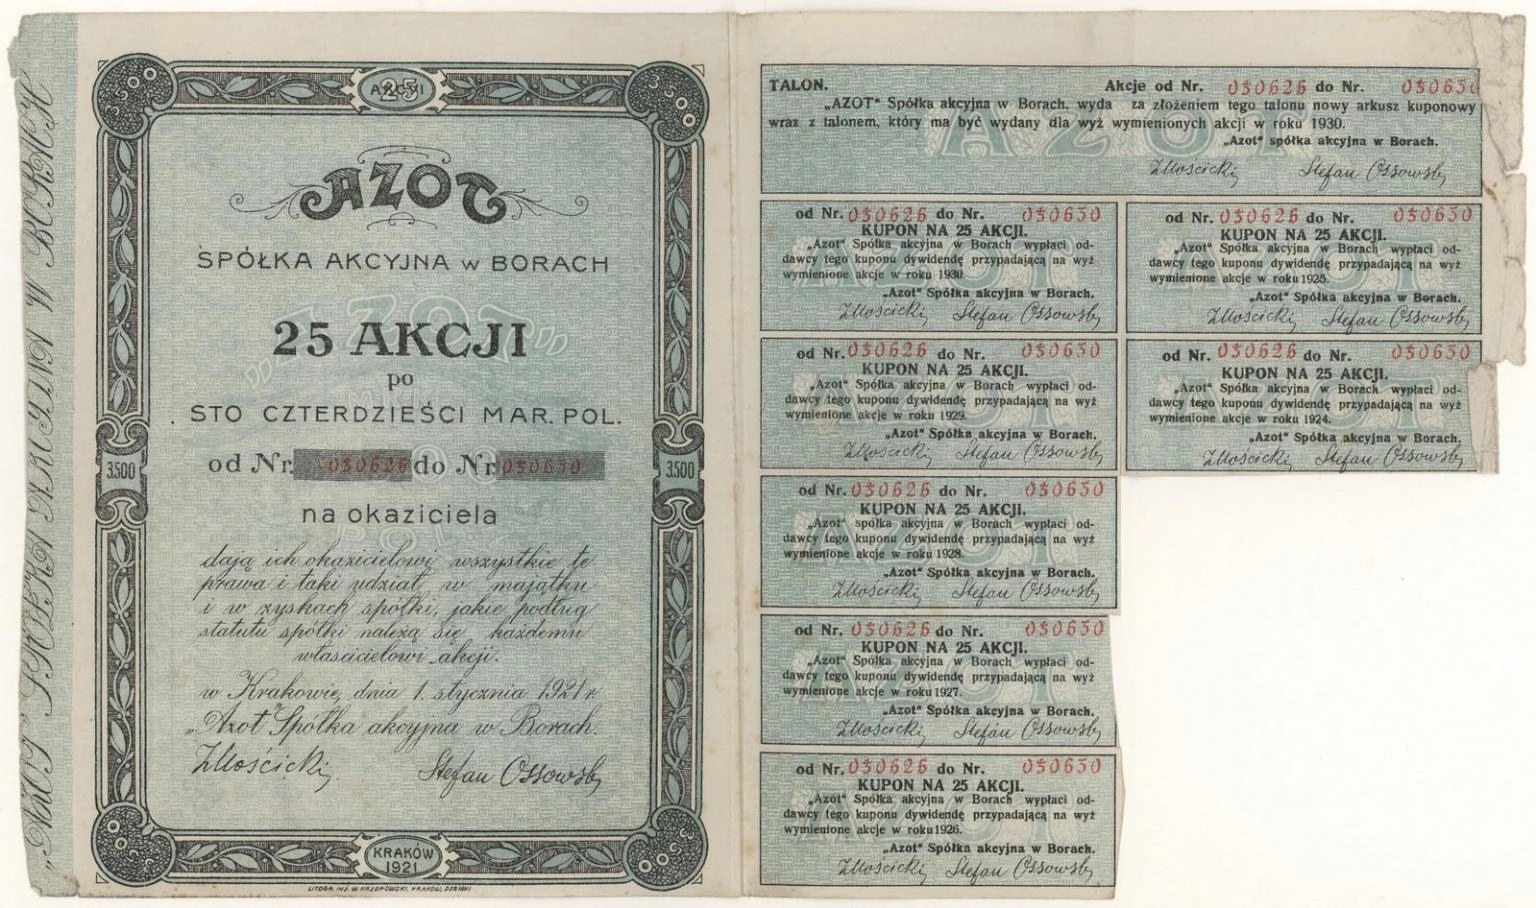 „AZOT” SPÓŁKA AKCYJNA W BORACH
3500
25
AKCYI
3500
AZOT
SPÓŁKA AKCYJNA w BORACH
25 AKCJI
po
STO CZTERDZIEŚCI MAR. POL.
od Nr. 030626 do Nr. 030630
3.500
3.500
na okaziciela
dają ich okazicielowi wszystkie te
prawa i taki udział, w majątku
i w zyskach spółki, jakie podług
statutu spółki należą się każdemu
właścicielowi akcji.
w Krakowie, dnia 1. stycznia 1921 r.
„Azot” Spółka akcyjna w Borach.
IMościcki
Stefan Ossowski
3500
KRAKÓW
1921
3500
LITOGR. INŻ. W. KRZEPOWSKI, KRAKÓW, DĘBNIKI
TALON. Akcje od Nr. 030626 do Nr. 030630
„AZOT” Spółka akcyjna w Borach, wyda za złożeniem tego talonu nowy arkusz kuponowy
wraz z talonem, który ma być wydany dla wyż wymienionych akcji w roku 1930.
„Azot” spółka akcyjna w Borach.
IMościcki Stefan Ossowski
od Nr. 030626 do Nr. 030630
KUPON NA 25 AKCJI.
„Azot” Spółka akcyjna w Borach wypłaci od-
dawcy tego kuponu dywidendę przypadającą na wyż
wymienione akcje w roku 1930.
„Azot” Spółka akcyjna w Borach.
IMościcki Stefan Ossowski
od Nr. 030626 do Nr. 030630
KUPON NA 25 AKCJI.
„Azot” Spółka akcyjna w Borach wypłaci od-
dawcy tego kuponu dywidendę przypadającą na wyż
wymienione akcje w roku 1925.
„Azot” Spółka akcyjna w Borach.
IMościcki Stefan Ossowski
od Nr. 030626 do Nr. 030630
KUPON NA 25 AKCJI.
„Azot” Spółka akcyjna w Borach wypłaci od-
dawcy tego kuponu dywidendę przypadającą na wyż
wymienione akcje w roku 1929.
„Azot” Spółka akcyjna w Borach.
IMościcki Stefan Ossowski
od Nr. 030626 do Nr. 030630
KUPON NA 25 AKCJI.
„Azot” Spółka akcyjna w Borach wypłaci od-
dawcy tego kuponu dywidendę przypadającą na wyż
wymienione akcje w roku 1924.
„Azot” Spółka akcyjna w Borach.
IMościcki Stefan Ossowski
od Nr. 030626 do Nr. 030630
KUPON NA 25 AKCJI.
„Azot” spółka akcyjna w Borach wypłaci od-
dawcy tego kuponu dywidendę przypadającą na wyż
wymienione akcje w roku 1928.
„Azot” Spółka akcyjna w Borach.
IMościcki Stefan Ossowski
od Nr. 030626 do Nr. 030630
KUPON NA 25 AKCJI.
„Azot” Spółka akcyjna w Borach wypłaci od-
dawcy tego kuponu dywidendę przypadającą na wyż
wymienione akcje w roku 1927.
„Azot” Spółka akcyjna w Borach.
IMościcki Stefan Ossowski
od Nr. 030626 do Nr. 030630
KUPON NA 25 AKCJI.
„Azot” Spółka akcyjna w Borach wypłaci od-
dawcy tego kuponu dywidendę przypadającą na wyż
wymienione akcje w roku 1926.
„Azot” Spółka akcyjna w Borach.
IMościcki Stefan Ossowski